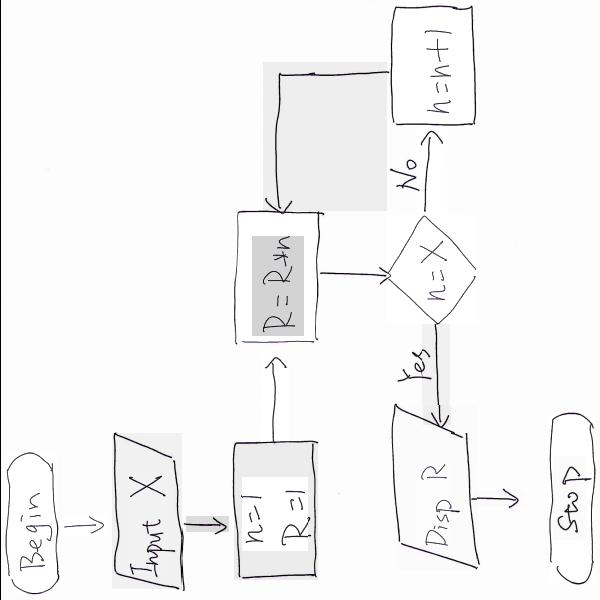 Begin
Input X
n=1
R=1
R=R*n
n=X
No
n=n+1
Yes
Disp R
Stop